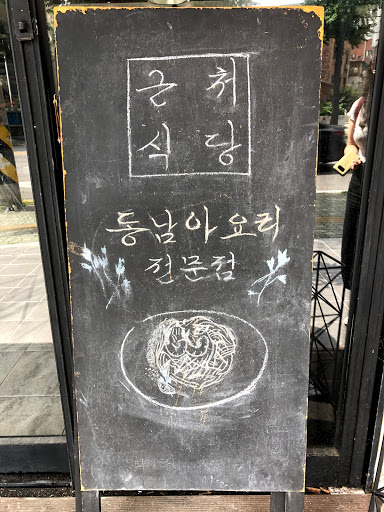 근처
식당
동남아요리
전문점